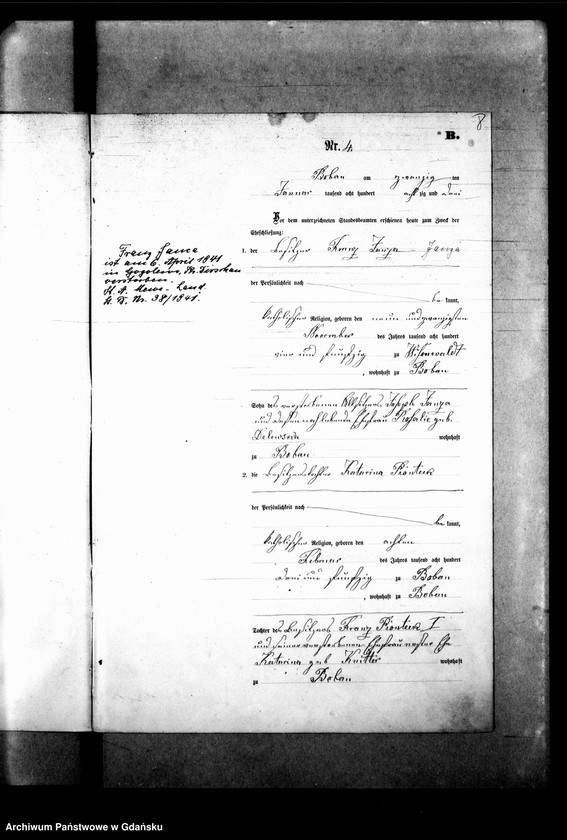 8
B.
Nr. 4.
Boban am zwanzig ten
Januar tausend acht hundert acht zig und drei
Vor dem unterzeichneten Standesbeamten erschienen heute zum Zweck der
Eheschließung:
1. der Besitzer Franz Janza Janza
der Persönlichkeit nach
be kannt,
katholischer Religion, geboren den neun und zwanzigsten
November des Jahres tausend acht hundert
vier und fünfzig zu
, wohnhaft zu Boban
Sohn des verstorbenen Joseph Janza
und dessen nachlebende Ehefrau Rosalie geb.
wohnhaft
zu Boban
2. die Besitzerstochter Katarina Piontek
der Persönlichkeit nach
be kannt,
katholischer Religion, geboren den achten
Februar des Jahres tausend acht hundert
drei und fünfzig zu Boban
, wohnhaft zu Boban
Tochter des Besitzers Franz Piontek I
und seiner verstorbenen Ehefrau erster Ehe
Katarina geb. Knitter wohnhaft
zu Boban
Franz
ist am 6. April 1941
in
verstorben.
St. A. Mewe - Land
St. B. Nr. 38/1941.
Archiwum Państwowe w Gdańsku